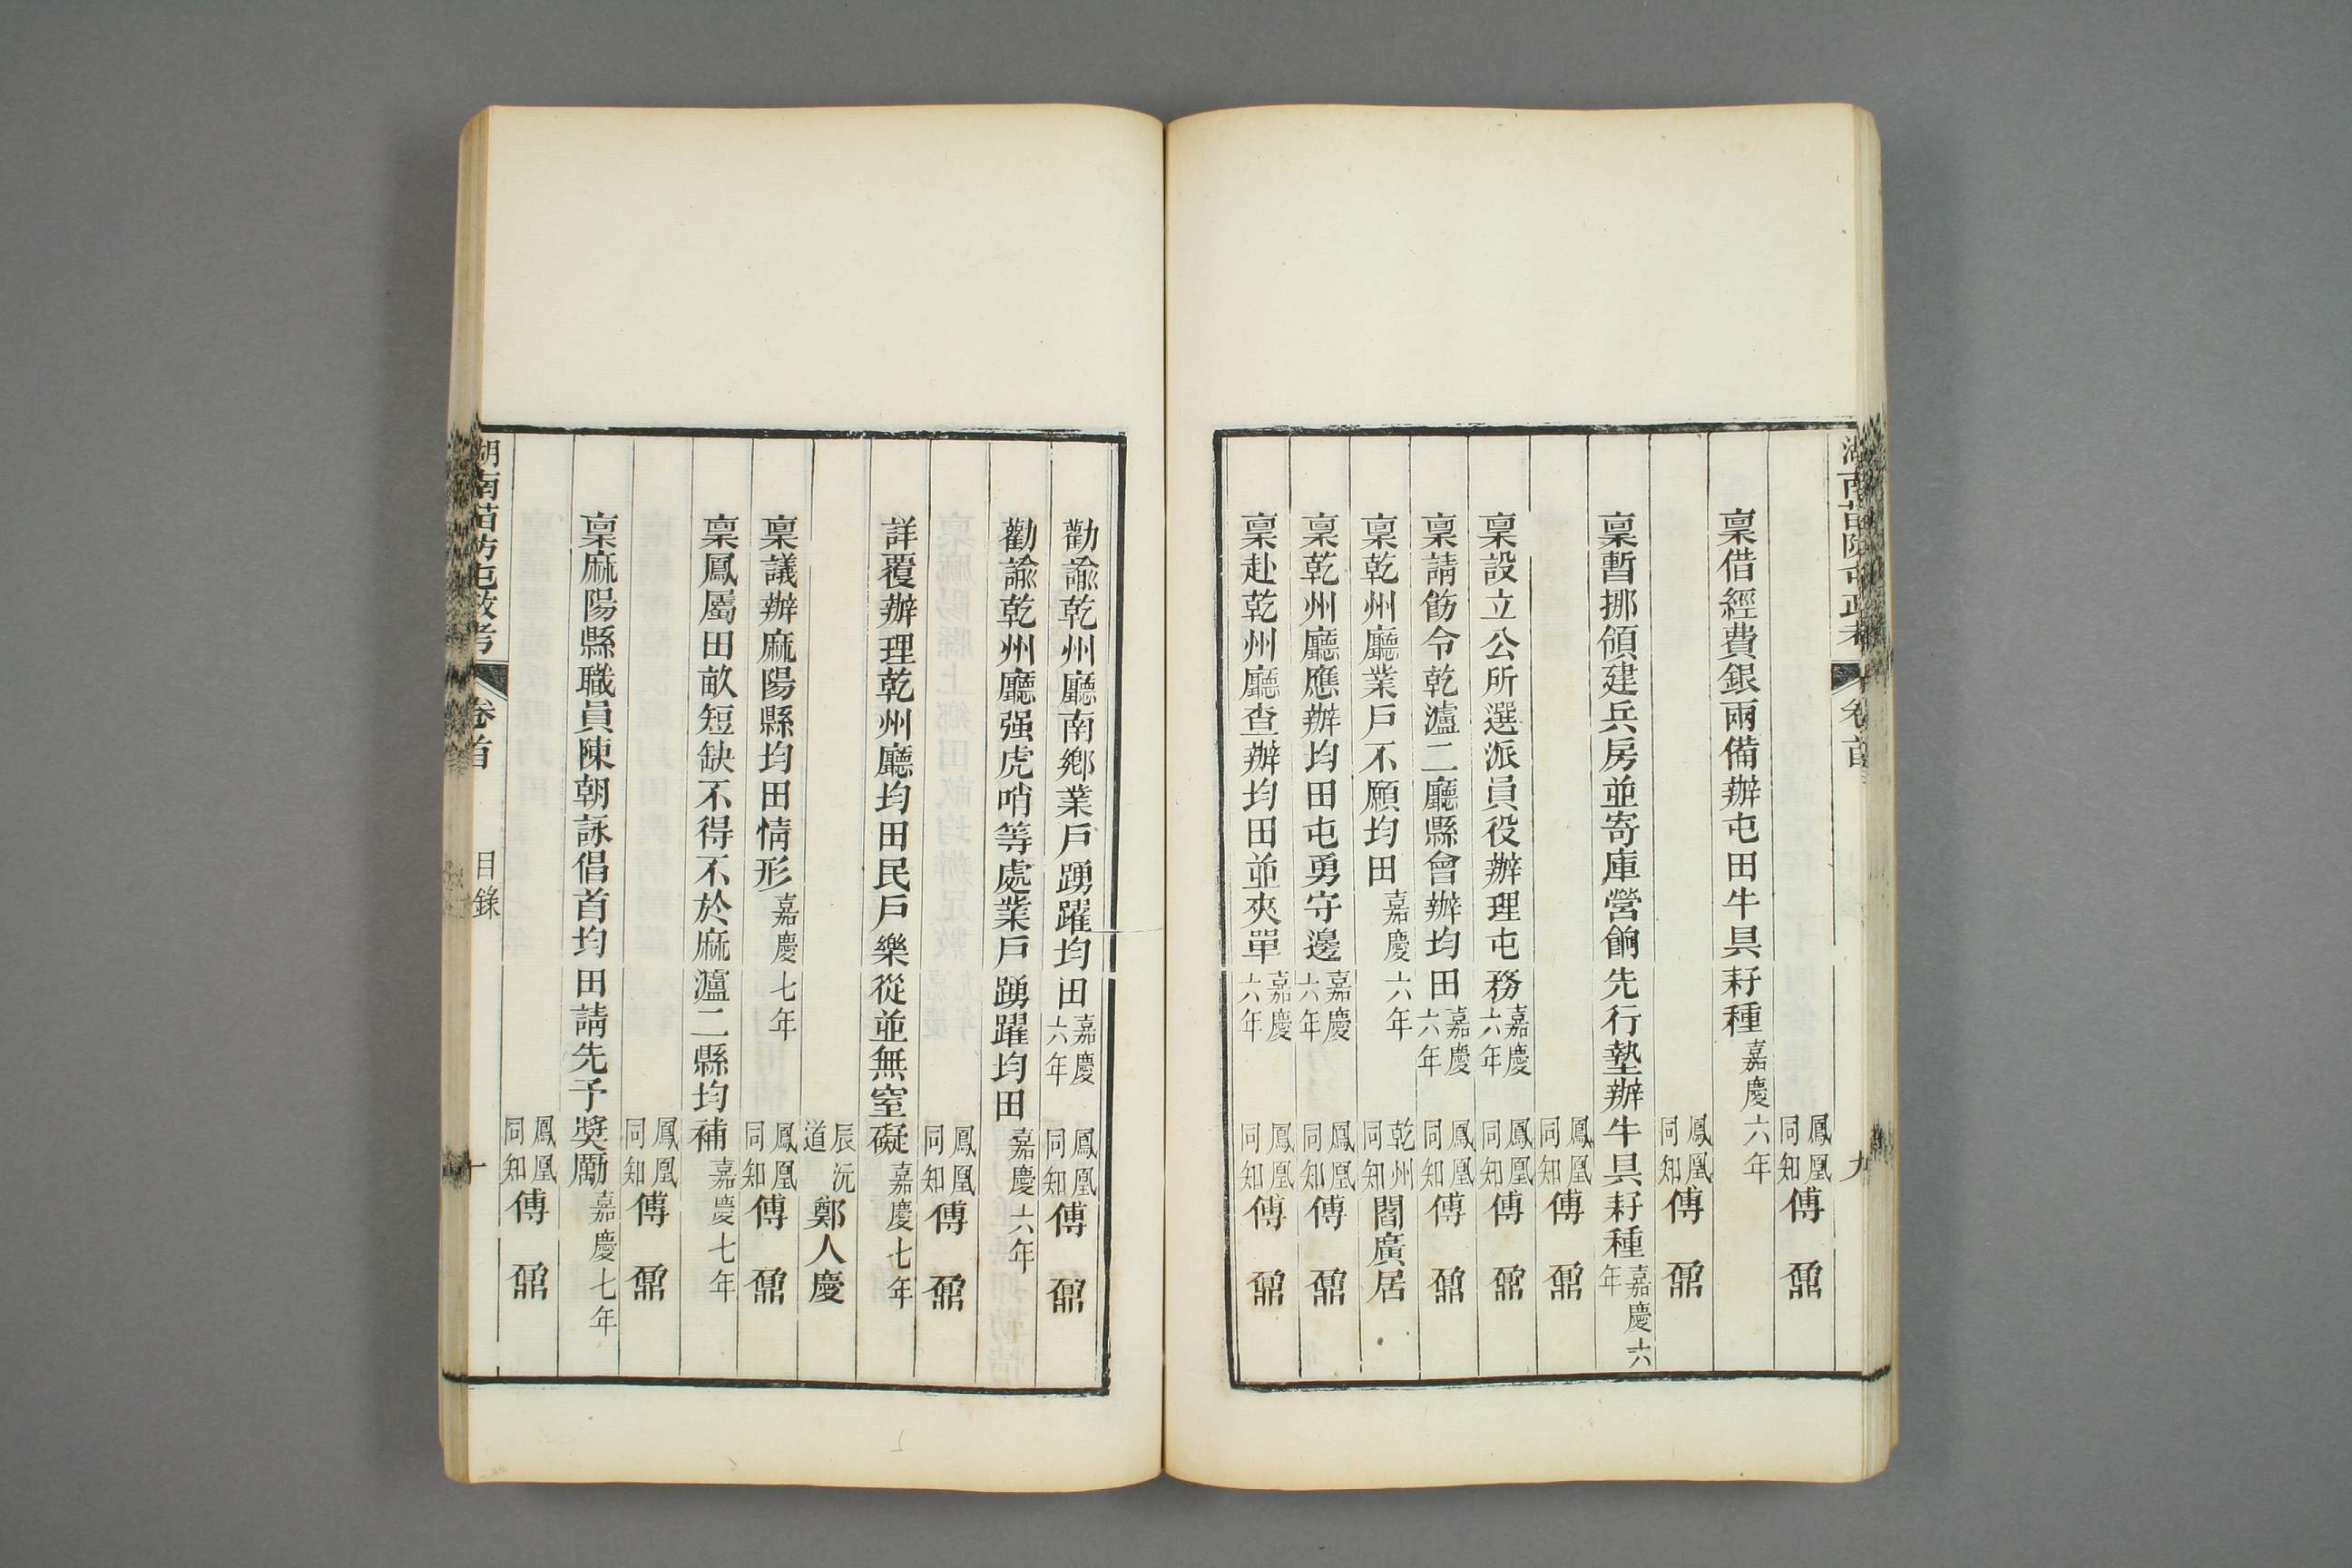 湖南苗防屯政考 卷首 九
鳳凰同知傅鼐
稟借經費銀兩備辦屯田牛具耔種嘉慶六年
鳳凰同知傅鼐
稟暫挪領建兵房並寄庫營餉先行墊辦牛具耔種嘉慶六年
鳳凰同知傅鼐
稟設立公所選派員役辦理屯務嘉慶六年 鳳凰同知傅鼐
稟請飭令乾瀘二廳縣會辦均田嘉慶六年 鳳凰同知傅鼐
稟乾州廳業戶不願均田嘉慶六年 乾州同知閻廣居
稟乾州廳應辦均田屯勇守邊嘉慶六年 鳳凰同知傅鼐
稟赴乾州廳查辦均田並夾單嘉慶六年 鳳凰同知傅鼐
勸諭乾州廳南鄉業戶踴躍均田嘉慶六年 鳳凰同知傅鼐
勸諭乾州廳强虎哨等處業戶踴躍均田嘉慶六年
鳳凰同知傅鼐
詳覆辦理乾州廳均田民戶樂從並無窒礙嘉慶七年
辰沅道鄭人慶
稟議辦麻陽縣均田情形嘉慶七年 鳳凰同知傅鼐
稟鳳屬田畝短缺不得不於麻瀘二縣均補嘉慶七年
鳳凰同知傅鼐
稟麻陽縣職員陳朝詠倡首均田請先予獎勵嘉慶七年
鳳凰同知傅鼐
湖南苗防屯政考 卷首 目錄 十